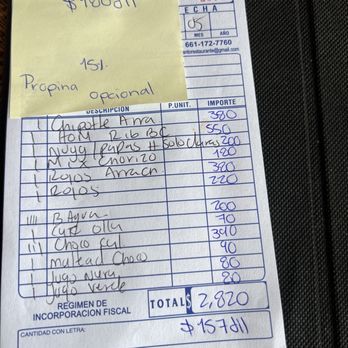 $180dll
15%
Propina opcional
FECHA
05
MES AÑO
661-172-7760
DESCRIPCIÓN P.UNIT. IMPORTE
1 Chipotle Arra 380
1 Rib 550
1 papas # Solo Claras 200
1 Chorizo 180
1 Rojos Arrach 380
1 Rojos 220
1111 B Agua 200
1 Café Olla 70
111 Choco 390
1 malteada Choco 90
1 Jugo 80
1 Jugo Verde 80
REGIMEN DE INCORPORACION FISCAL
TOTAL $ 2,820
CANTIDAD CON LETRA:
$157dll